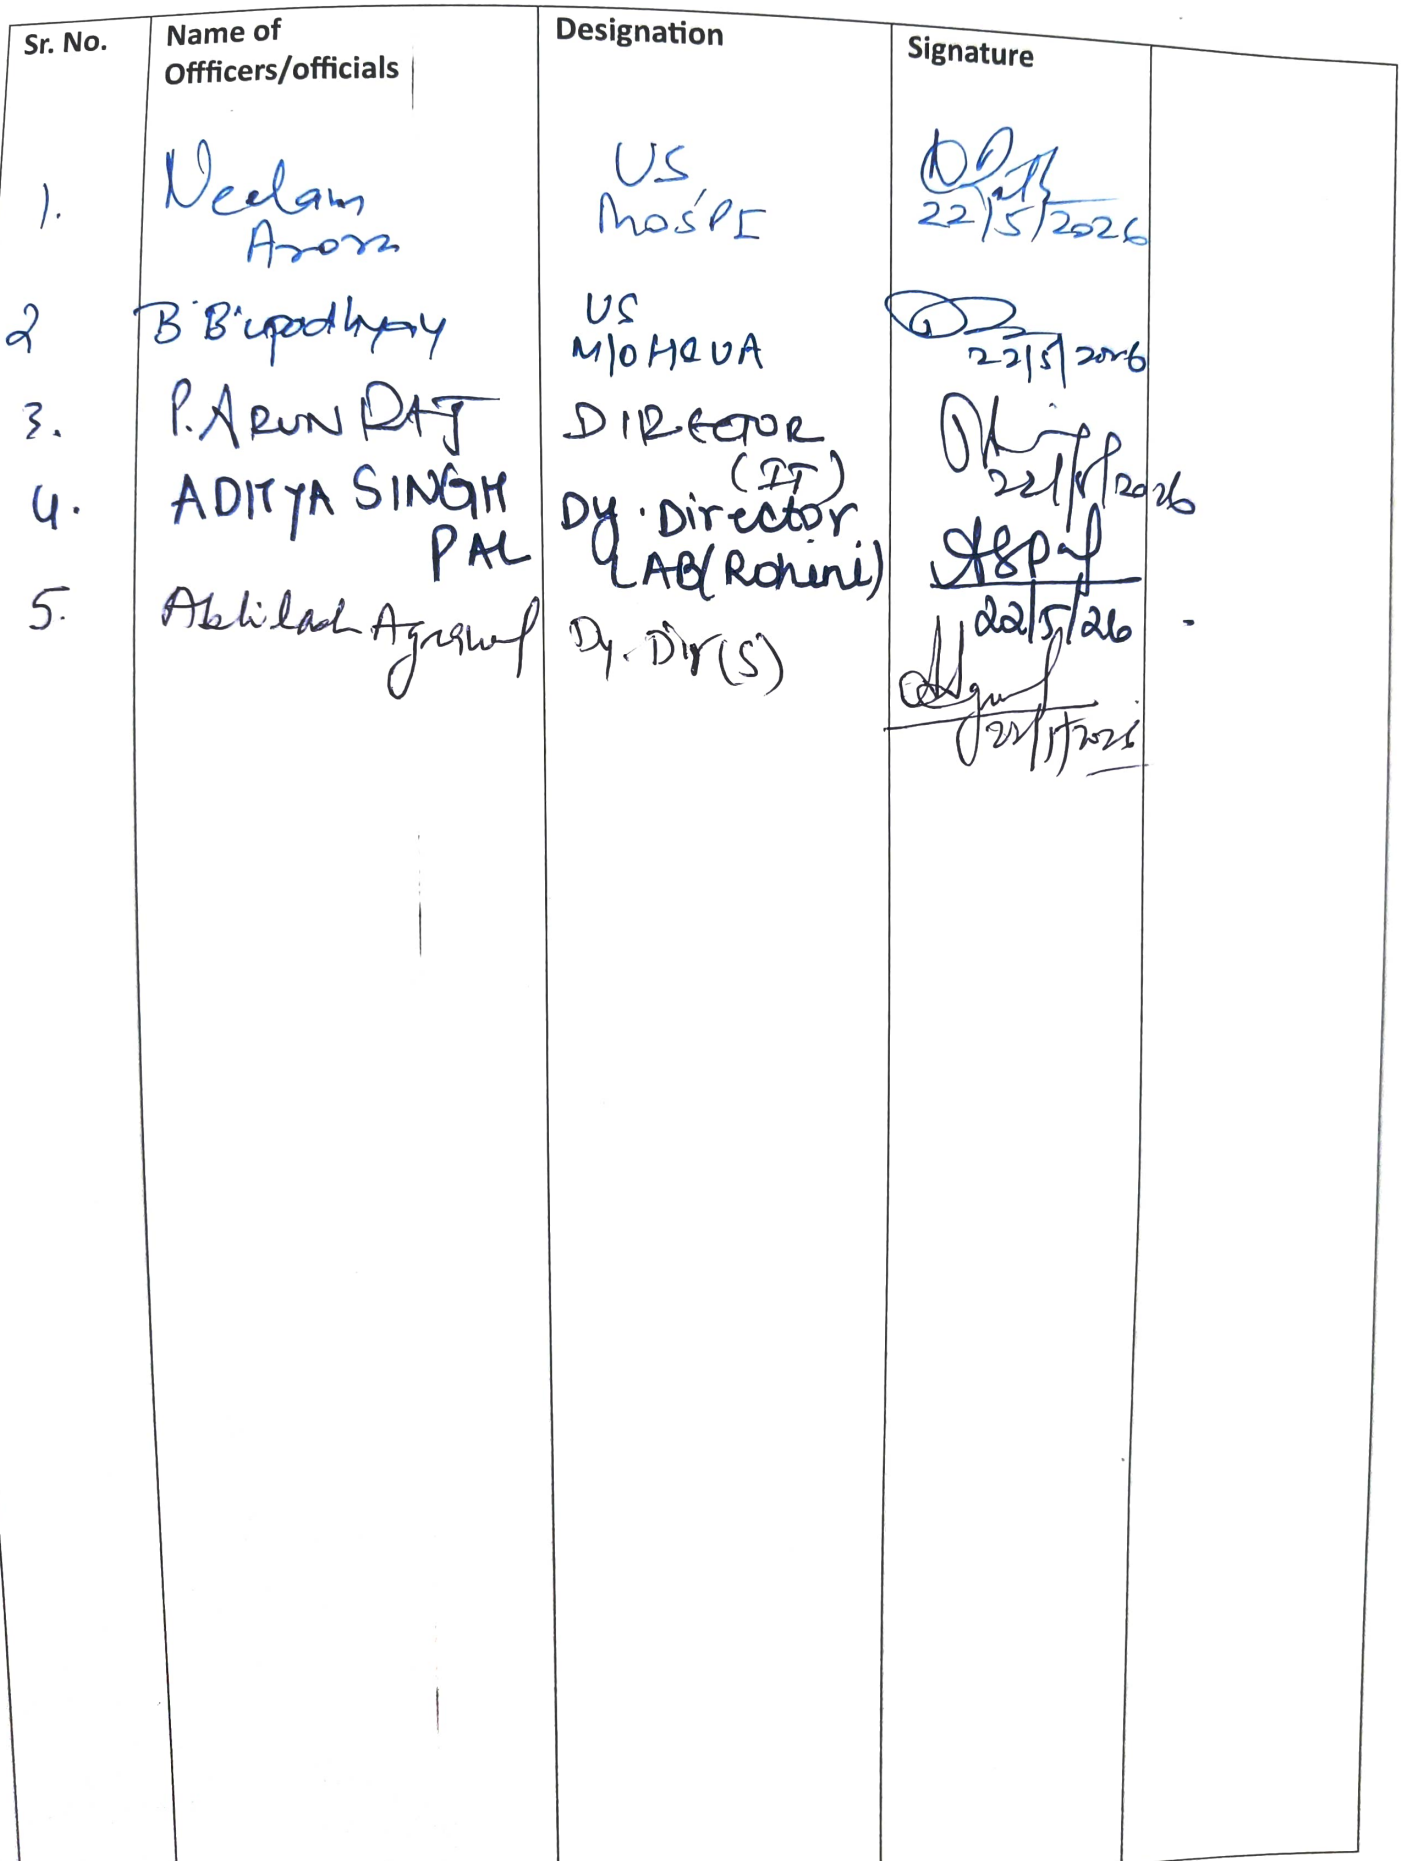 Sr. No. Name of Offficers/officials Designation Signature
1. Neelam Arora US, MoSPI 22/5/2026
2 B B Upadhyay US M/O H&UA 22/5/2026
3. P. ARUN RAJ DIRECTOR (IT) 22/5/2026
4. ADITYA SINGH PAL Dy. Director LAB(Rohini) ASPal 22/5/26
5. Abhilash Agrawal Dy. Dir(S) 22/5/2026